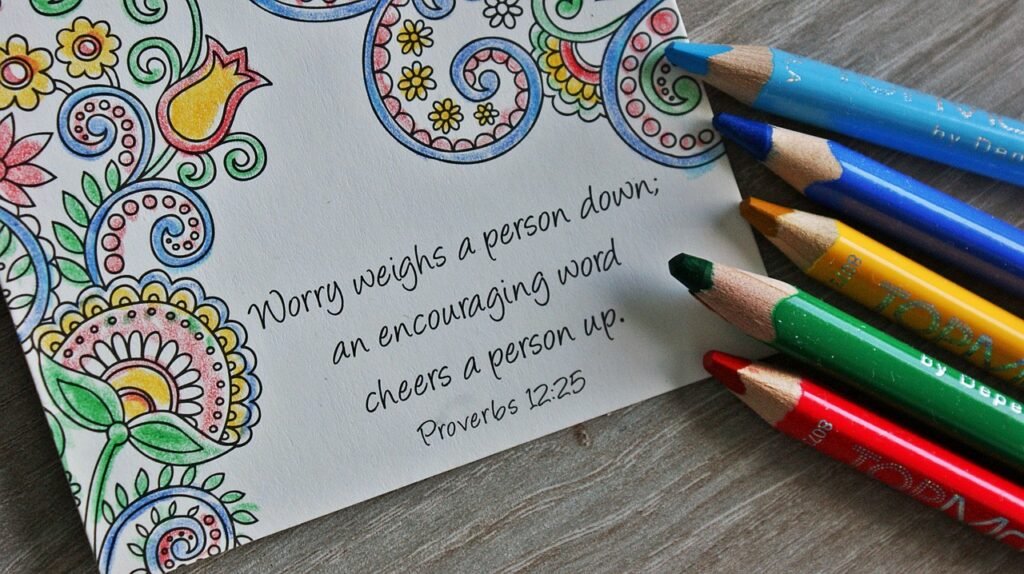 Worry weighs a person down;
an encouraging word
cheers a person up.
Proverbs 12:25
by Depe
TOPM
by Depe
403
TOPMO